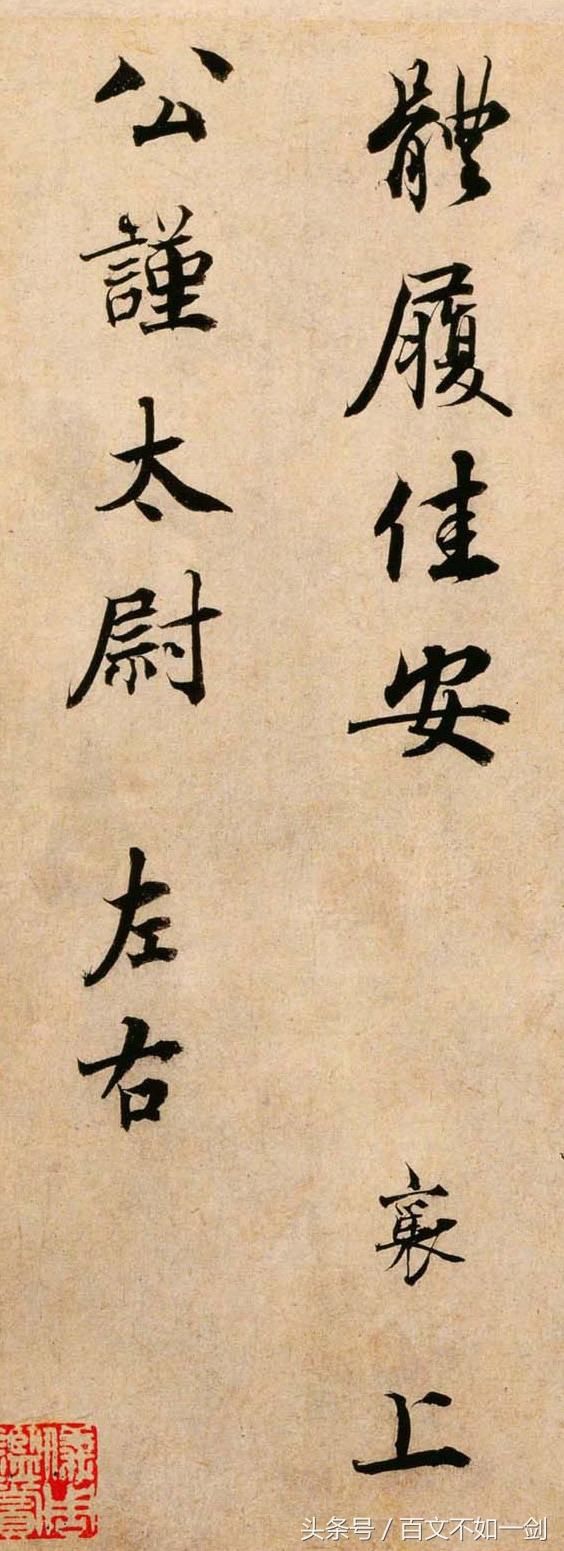 體履佳安
襄 上
公謹太尉 左右
头条号 / 百文不如一剑